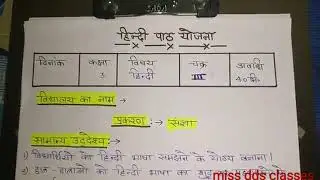 हिन्दी पाठ योजना
दिनांक कक्षा विषय चक्र अवधी
3 हिन्दी III 40 मि.
विद्यालय का नाम
प्रकरण :→ संज्ञा
सामान्य उद्देश्य :→
1) विद्यार्थियों को हिन्दी भाषा समझने के योग्य बनाना।
2) छात्र-छात्राओं को हिन्दी भाषा का शुद्ध
miss dds classes